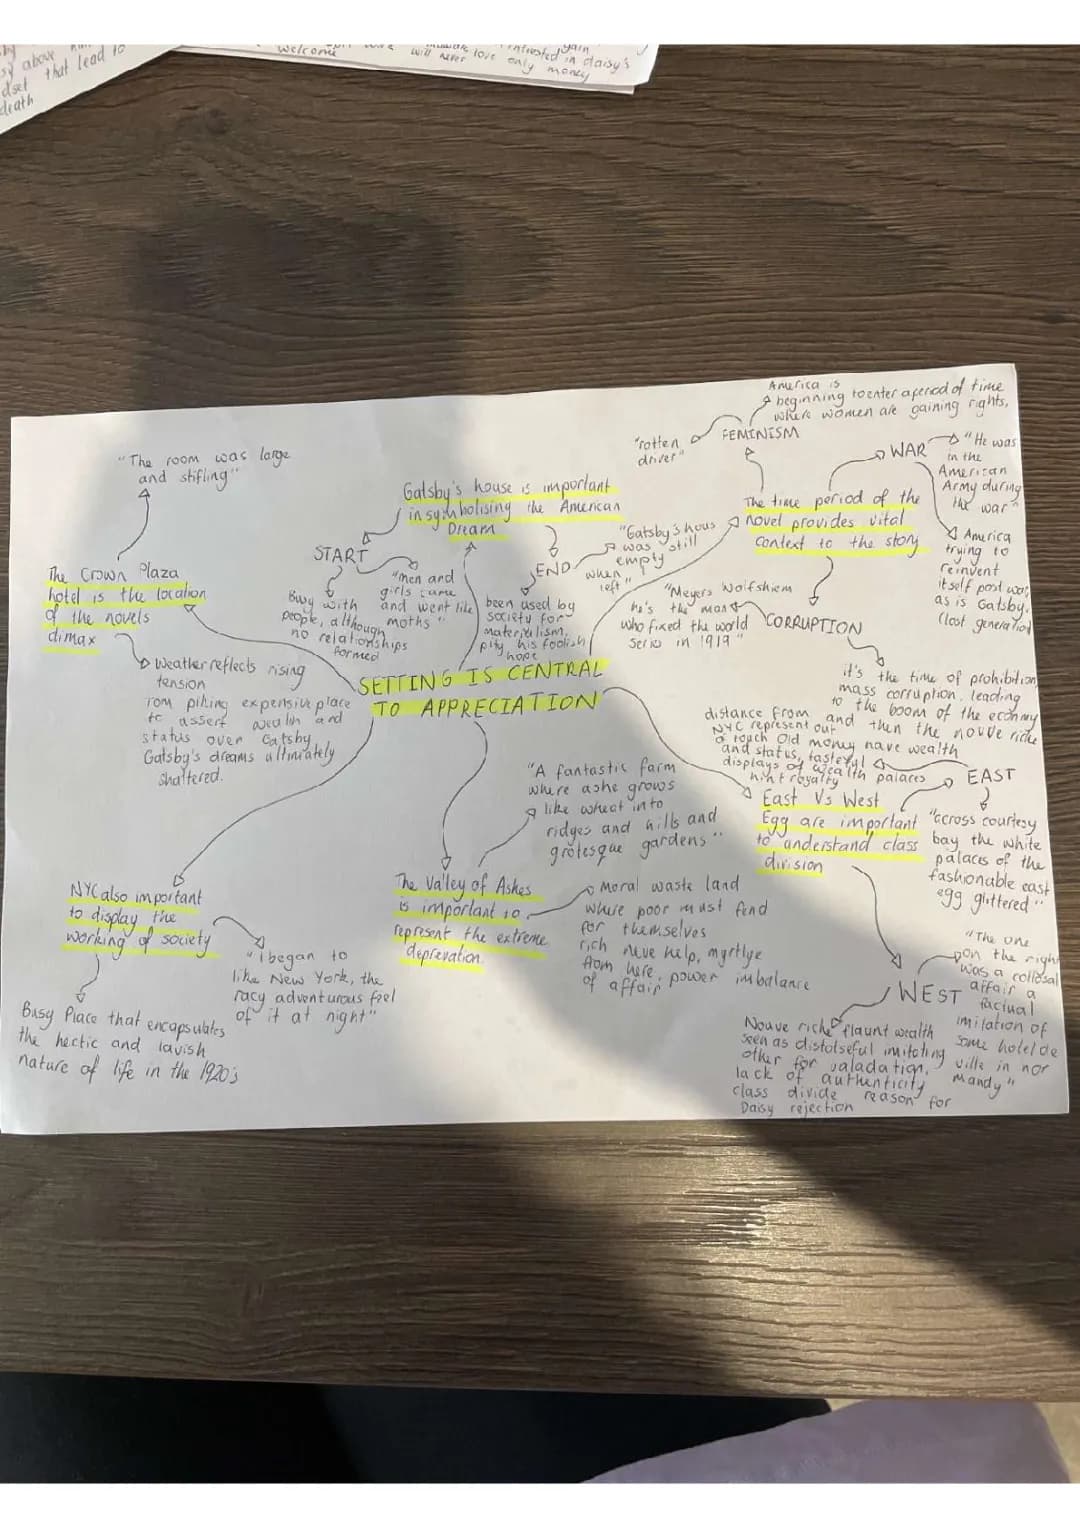 sy above
dset that lead to
death
welcome
will never love only money
intrested in daisy's
America is
beginning to enter a period of time
where women are gaining rights,
FEMINISM
"rotten
driver"
WAR
"He was
in the
American
Army during
the war"
The time period of the
novel provides vital
context to the story
America
trying to
reinvent
itself post war,
as is Gatsby.
(lost generation)
CORRUPTION
"Meyers Wolfshiem
he's the man
who fixed the world
series in 1919"
it's the time of prohibition
mass corruption, leading
to the boom of the econmy
and then the nouve riche
"The room was large
and stifling"
The Crown Plaza
hotel is the location
of the novels
climax
Weather reflects rising
tension
Tom piking expensive place
to assert wealth and
status over Gatsby
Gatsby's dreams ultimiately
shattered.
Gatsby's house is important
in symbolising the American
Dream
START
Busy with
people, although
no relationships
formed
"men and
girls came
and went like
moths"
END
"Gatsby's hous
was still
empty
when I
left"
been used by
society for
materialism,
pity his foolish
hope
SETTING IS CENTRAL
TO APPRECIATION
East Vs West
Egg are important
to understand class
division
EAST
distance from
NYC represent out
o touch Old money have wealth
and status, tasteful
displays of wealth palaces
hint royalty
"across courtesy
bay the white
palaces of the
fashionable east
egg glittered"
WEST
"The one
on the right
was a collosal
affair a
factual
imitation of
some hotel de
ville in nor
mandy"
Nouve riche flaunt wealth
seen as distotseful imitating
other for valadation,
lack of authenticity
class divide reason for
Daisy rejection
The Valley of Ashes
is important to
represent the extreme
deprevation.
"A fantastic farm
where ashe grows
like wheat into
ridges and hills and
grotesque gardens"
Moral waste land
where poor must fend
for themselves
rich neve help, myrtlye
from here, power imbalance
of affair
NYC also important
to display the
working of society
"i began to
like New York, the
racy adventurous feel
of it at night"
Busy Place that encapsulates
the hectic and lavish
nature of life in the 1920's